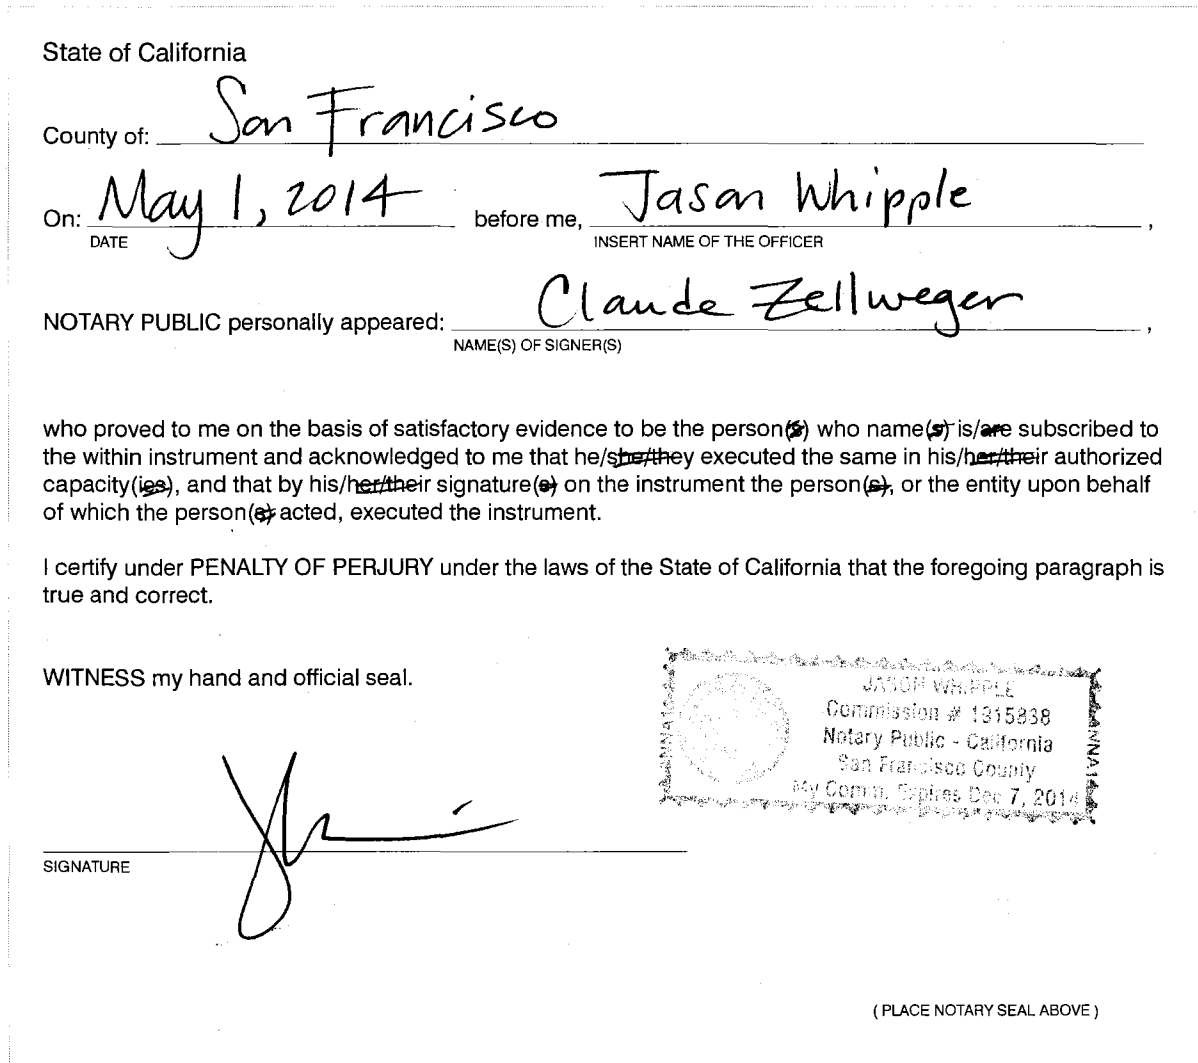 State of California
County of: San Francisco
On: May 1, 2014 before me, Jason Whipple,
DATE INSERT NAME OF THE OFFICER
NOTARY PUBLIC personally appeared: Claude Zellweger,
NAME(S) OF SIGNER(S)
who proved to me on the basis of satisfactory evidence to be the person(s) who name(s) is/are subscribed to
the within instrument and acknowledged to me that he/she/they executed the same in his/her/their authorized
capacity(ies), and that by his/her/their signature(s) on the instrument the person(s), or the entity upon behalf
of which the person(s) acted, executed the instrument.
I certify under PENALTY OF PERJURY under the laws of the State of California that the foregoing paragraph is
true and correct.
WITNESS my hand and official seal.
JASON WHIPPLE
Commission # 1915838
Notary Public - California
San Francisco County
My Comm. Expires Dec 7, 2014
SIGNATURE
( PLACE NOTARY SEAL ABOVE )